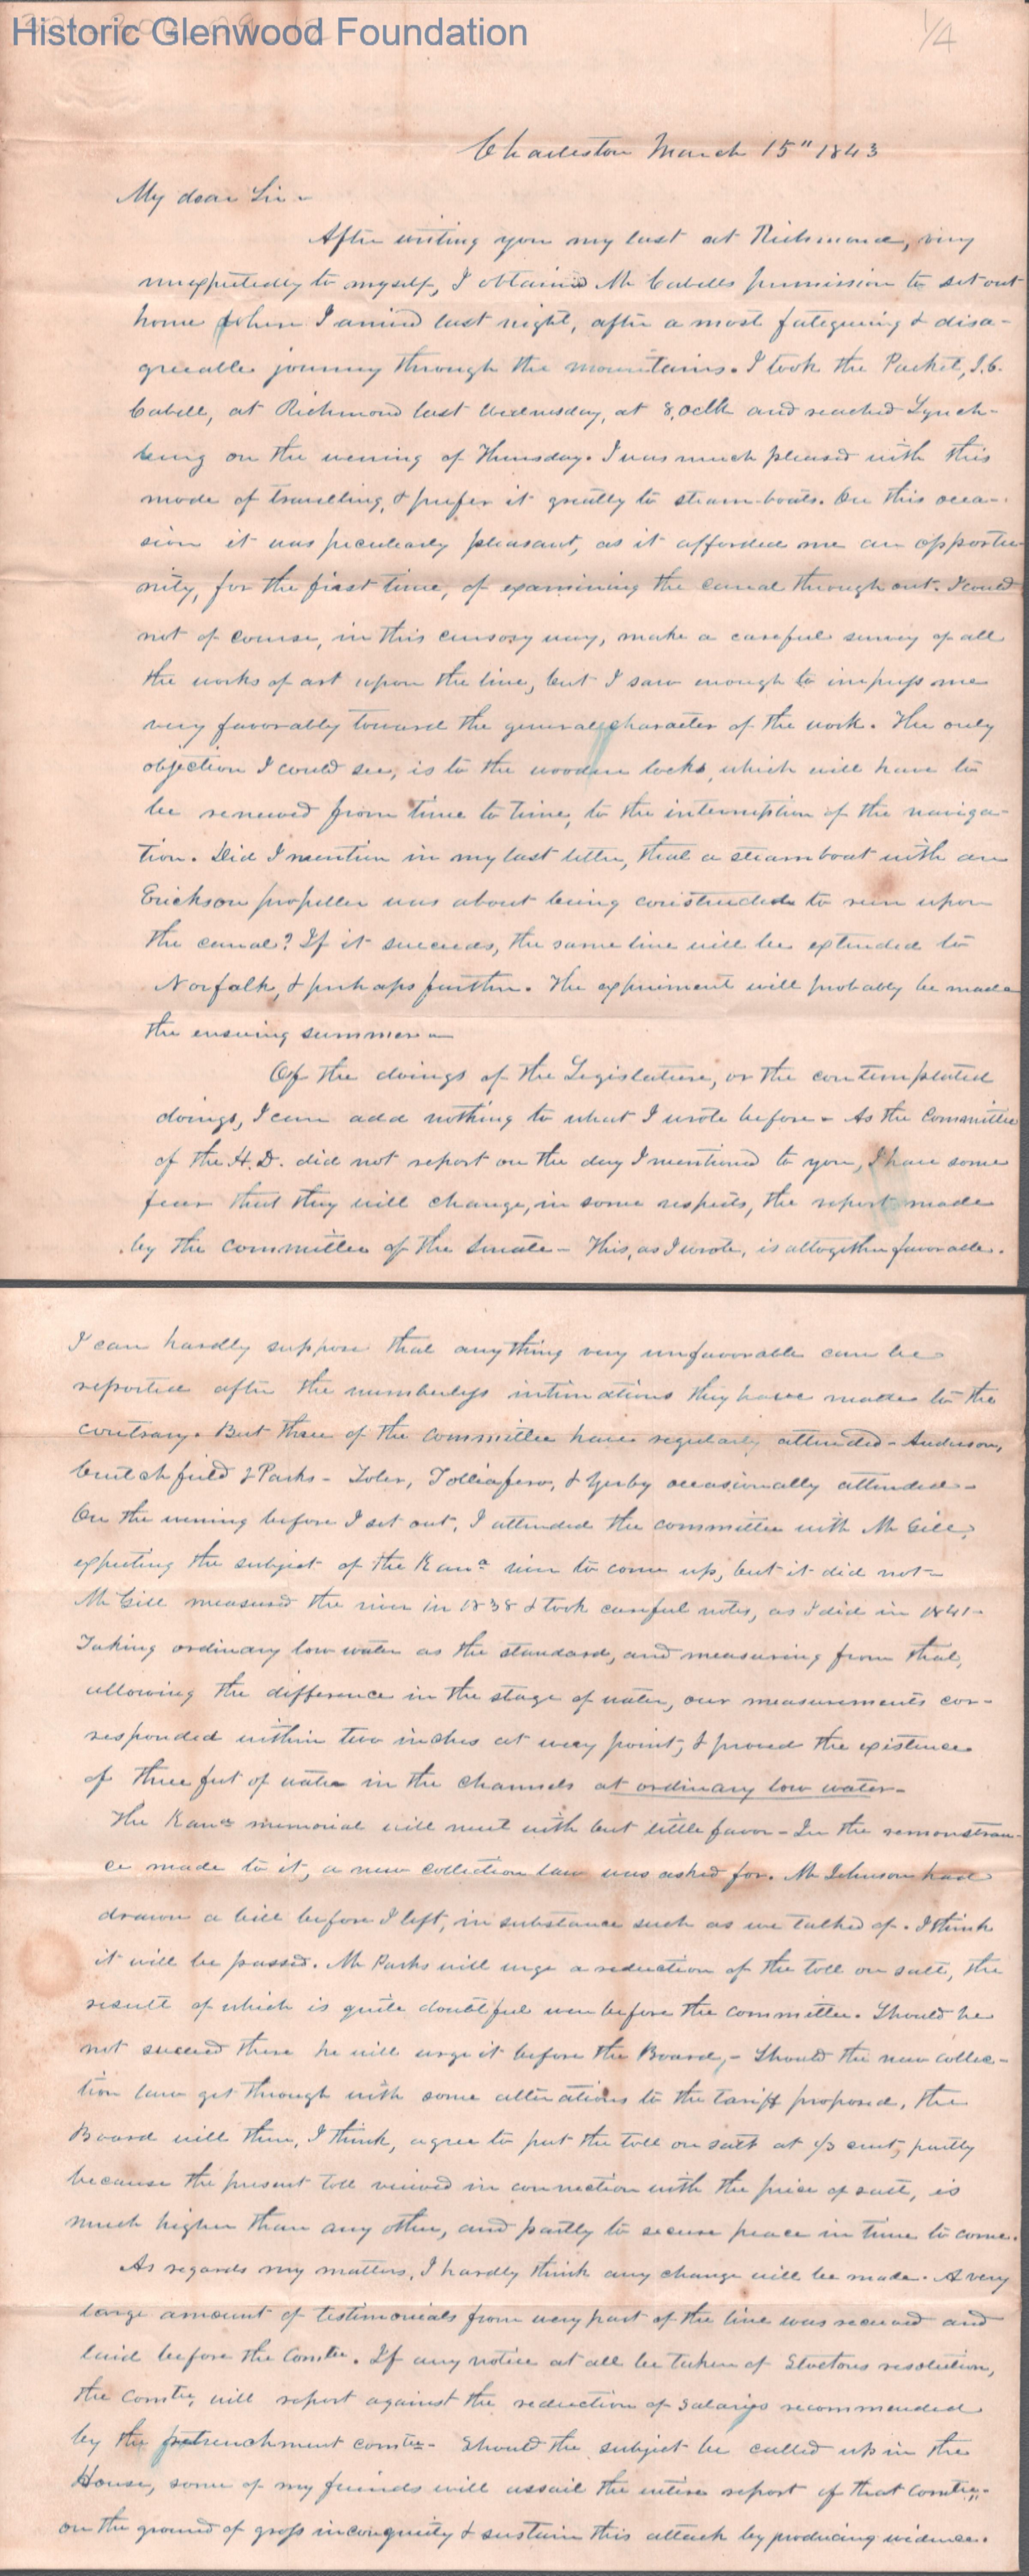 Historic Glenwood Foundation
1/4
Charleston March 15" 1843
My dear Sir -
After writing you my last at Richmond, very
unexpectedly to myself, I obtained Mr Cabells permission to set out
home where I arrived last night, after a most fatigueing & disa-
greeable journey through the mountains. I took the Packet, J. C.
Cabell, at Richmond last Wednesday, at 8, oclk and reached Lynch-
burg on the evening of Thursday. I was much pleased with this
mode of travelling, & prefer it greatly to steam-boats. On this occa-
sion it was peculiarly pleasant, as it afforded me an opportu-
nity, for the first time, of examining the canal throughout. I could
not of course, in this cursory way, make a careful survey of all
the works of art upon the line, but I saw enough to impress me
very favorably toward the general character of the work. The only
objection I could see, is to the wooden locks, which will have to
be renewed from time to time, to the interruption of the naviga-
tion. Did I mention in my last letter, that a steamboat with an
Erickson propeller was about being constructed to run upon
the canal? If it succeeds, the same line will be extended to
Norfolk, & perhaps further. The experiment will probably be made
the ensuing summer -
Of the doings of the Legislature, or the contemplated
doings, I can add nothing to what I wrote before - As the Committee
of the H. D. did not report on the day I mentioned to you, I have some
fear that they will change, in some respects, the report made
by the committee of the Senate - This, as I wrote, is altogether favorable.
I can hardly suppose that anything very unfavorable can be
reported after the numberless intimations they have made to the
contrary. But three of the committee have regularly attended - Anderson,
Crutchfield & Parks - Toler, Tolliafero, & Yerby occasionally attended -
On the evening before I set out, I attended the committee with Mr Gill,
expecting the subject of the Kana river to come up, but it did not -
Mr Gill measured the river in 1838 & took careful notes, as I did in 1841 -
Taking ordinary low water as the standard, and measuring from that,
allowing the difference in the stage of water, our measurements cor-
responded within two inches at every point, & proved the existence
of three feet of water in the channels at ordinary low water -
The Kana memorial will meet with but little favor - In the remonstran-
ce made to it, a new collection law was asked for. Mr Johnson had
drawn a bill before I left, in substance such as we talked of. I think
it will be passed. Mr Parks will urge a reduction of the toll on salt, the
result of which is quite doubtful even before the committee. Should he
not succeed there he will urge it before the Board, - Should the new collec-
tion law get through with some alterations to the tariff proposed, the
Board will then, I think, agree to put the toll on salt at 1/3 cent, partly
because the present toll viewed in connection with the price of salt, is
much higher than any other, and partly to secure peace in time to come.
As regards my matters, I hardly think any change will be made. A very
large amount of testimonials from every part of the line was received and
laid before the Comtee. If any notice at all be taken of Stoctons resolution,
the Comtee, will report against the reduction of salaries recommended
by the retrenchment comtee - Should the subject be called up in the
House, some of my friends will assail the entire report of that Comtee, -
on the ground of gross incongruity & sustain this attack by producing evidence.